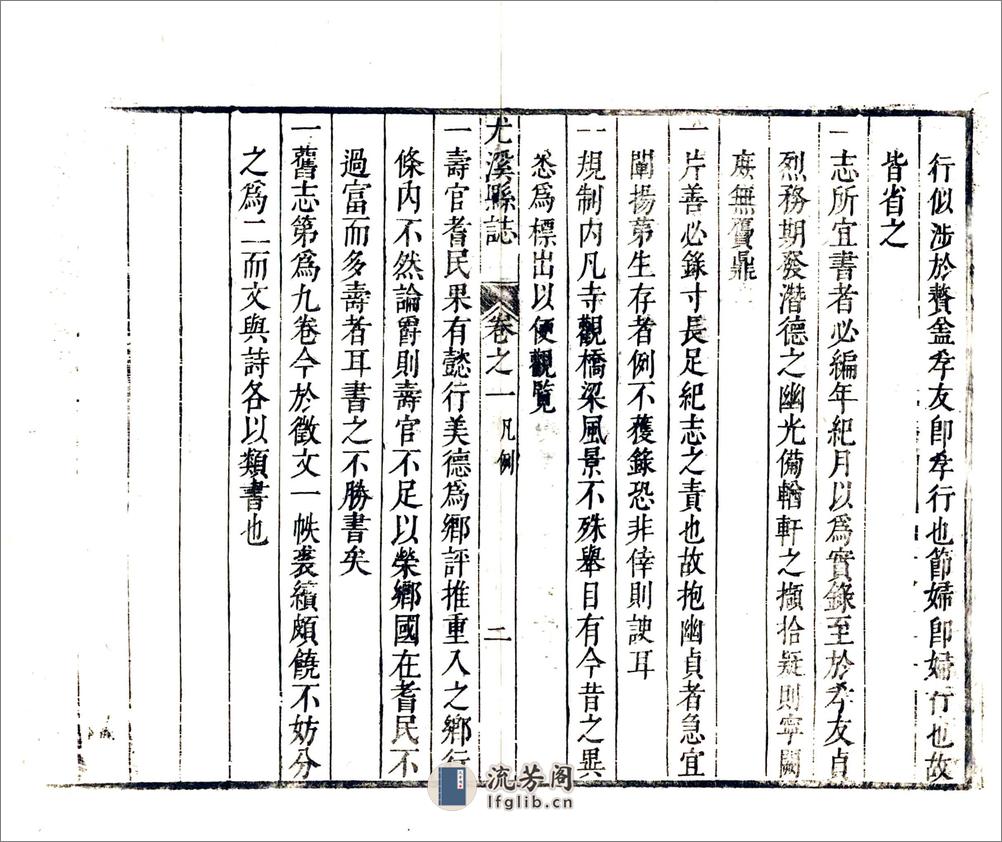 行似涉於贅盖孝友卽孝行也節婦卽婦行也故
皆省之
一志所宜書者必編年紀月以爲實錄至於孝友貞
烈務期發潛德之幽光備輶軒之擷拾疑則寧闕
庶無贋鼎
一片善必錄寸長足紀志之責也故抱幽貞者急宜
闡揚第生存者例不獲錄恐非倖則諛耳
一規制内凡寺觀橋梁風景不殊舉目有今昔之異
悉爲標出以便觀覽
尤溪縣誌 卷之一 凡例 二
一壽官耆民果有懿行美德爲鄉評推重入之鄉行
條内不然論爵則壽官不足以榮鄉國在耆民不
過富而多壽者耳書之不勝書矣
一舊志第爲九卷今於徵文一帙裒續頗饒不妨分
之爲二而文與詩各以類書也
流芳阁
lfglib.cn